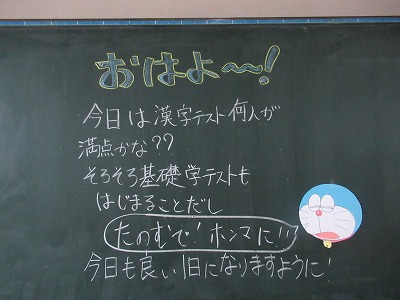 おはよ〜!
今日は漢字テスト何人が
満点かな??
そろそろ基礎学テストも
はじまることだし
たのむで!ホンマに!!
今日も良い1日になりますように!